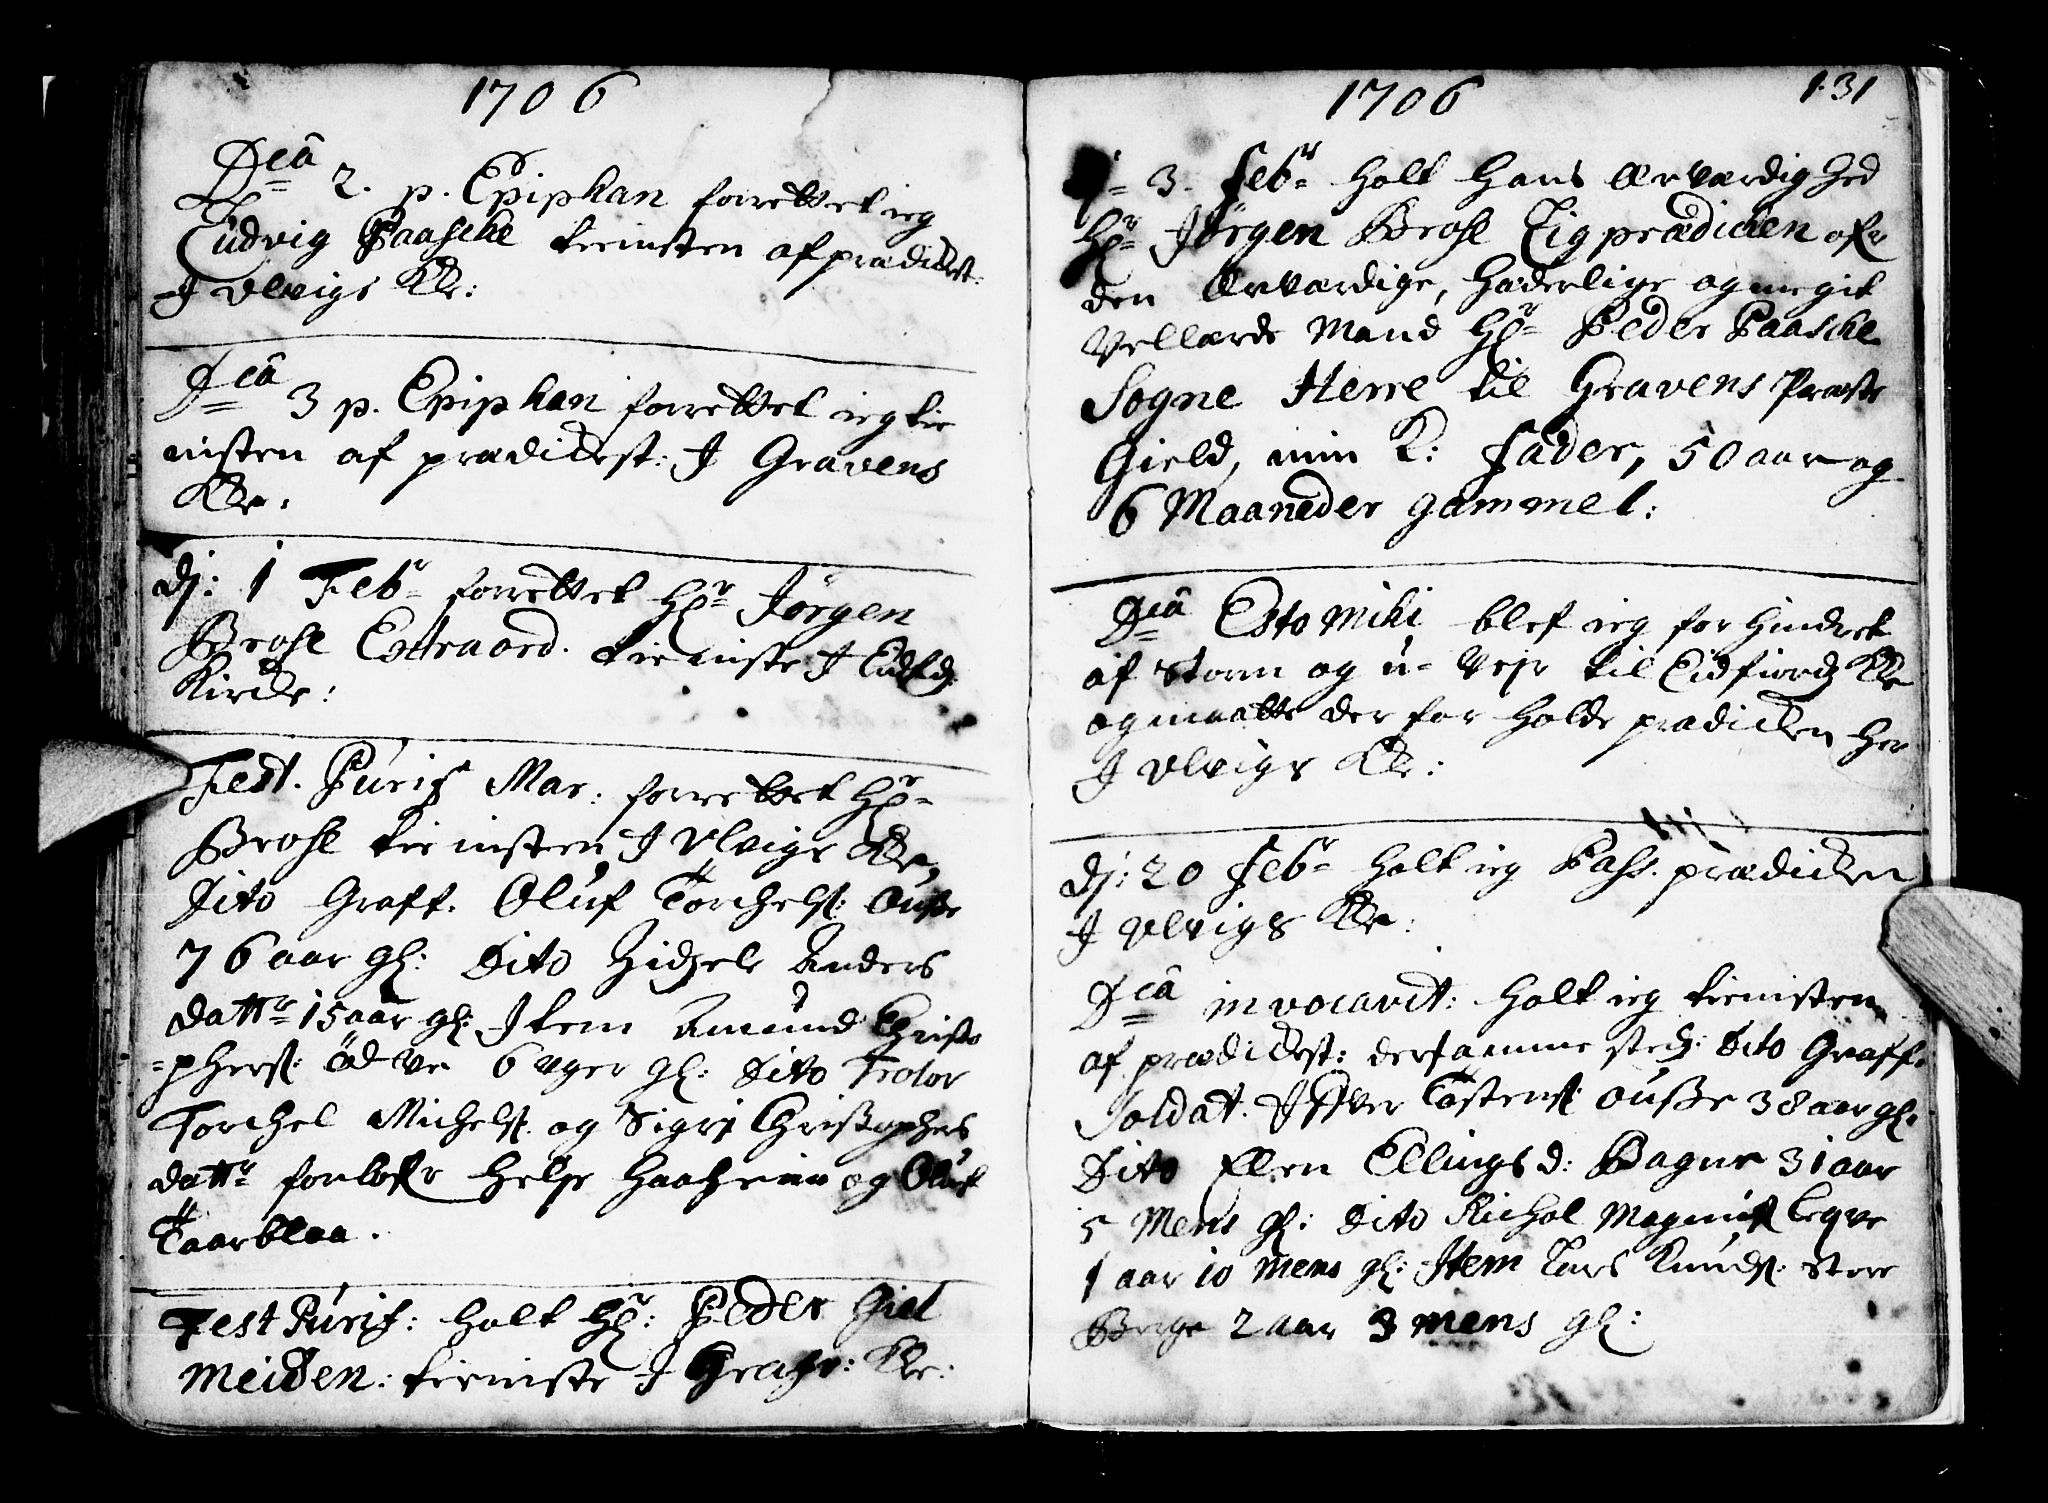 1706
Dca 2. p. Epiphan forrettet ieg
Ludvig Paasche tienisten af prædichest:
J Ulvigs Kke:
Dca 3 p. Epiphan forrettet ieg tie
nisten af prædichest: J Gravens
Kke.
dj: 1 Febr forrettet Hr Jörgen
Brose Extraord. tieniste J Eidfd:
Kircke:
Fest. Purif Mar: forrettet Hr
Brose tienisten J Ulvigs Kke,
Dito Graff. Oluf Torchels: Ouse
76 aar gl: Dito Zidzele Anders
dattr 15 aar gl: Item Amund Christo
=phers: ödve 6 uger gl: Dito Trolov
Torchel Michels: og Sigrj Christophers
dattr forlofr Helje Haaheim og Oluf
Taarblaa.
Fest Purif: holt Hr: Peder Giel
meiden: tieniste J Grafv: Kke:
1706 131
dj 3. Febr holt Hans Ærværdighed
Hr Jörgen Brose Ligprædicken ofr
den Ærværdige, Hæderlige og megit
Vellærde Mand Hr Peder Paasche
Sogne Herre til Gravens Præste
Gield, min K: Fader, 50 aar og
6 Maaneder gammel:
Dca Esto mihi blef ieg forhindret
af Storm og u-vejr til Eidfiord Kke
og maatte der for holde prædicken her
J Ulvigs Kke:
dj: 20 Febr holt ieg Pass. prædicken
J Ulvigs Kke:
Dca invocavit: holt ieg tienisten
af prædichest: dersamme sted: Dito Graff.
Soldat. Ifver Tostens: Ousse 38 aar gl:
Dito Ellen Ellings d: Bagne 31 aar
5 Mens gl: Dito Michol Magnus: Leqve
1 aar 10 mens gl: Item Lars Knuds: Store
Berge 2 aar 3 mens gl: